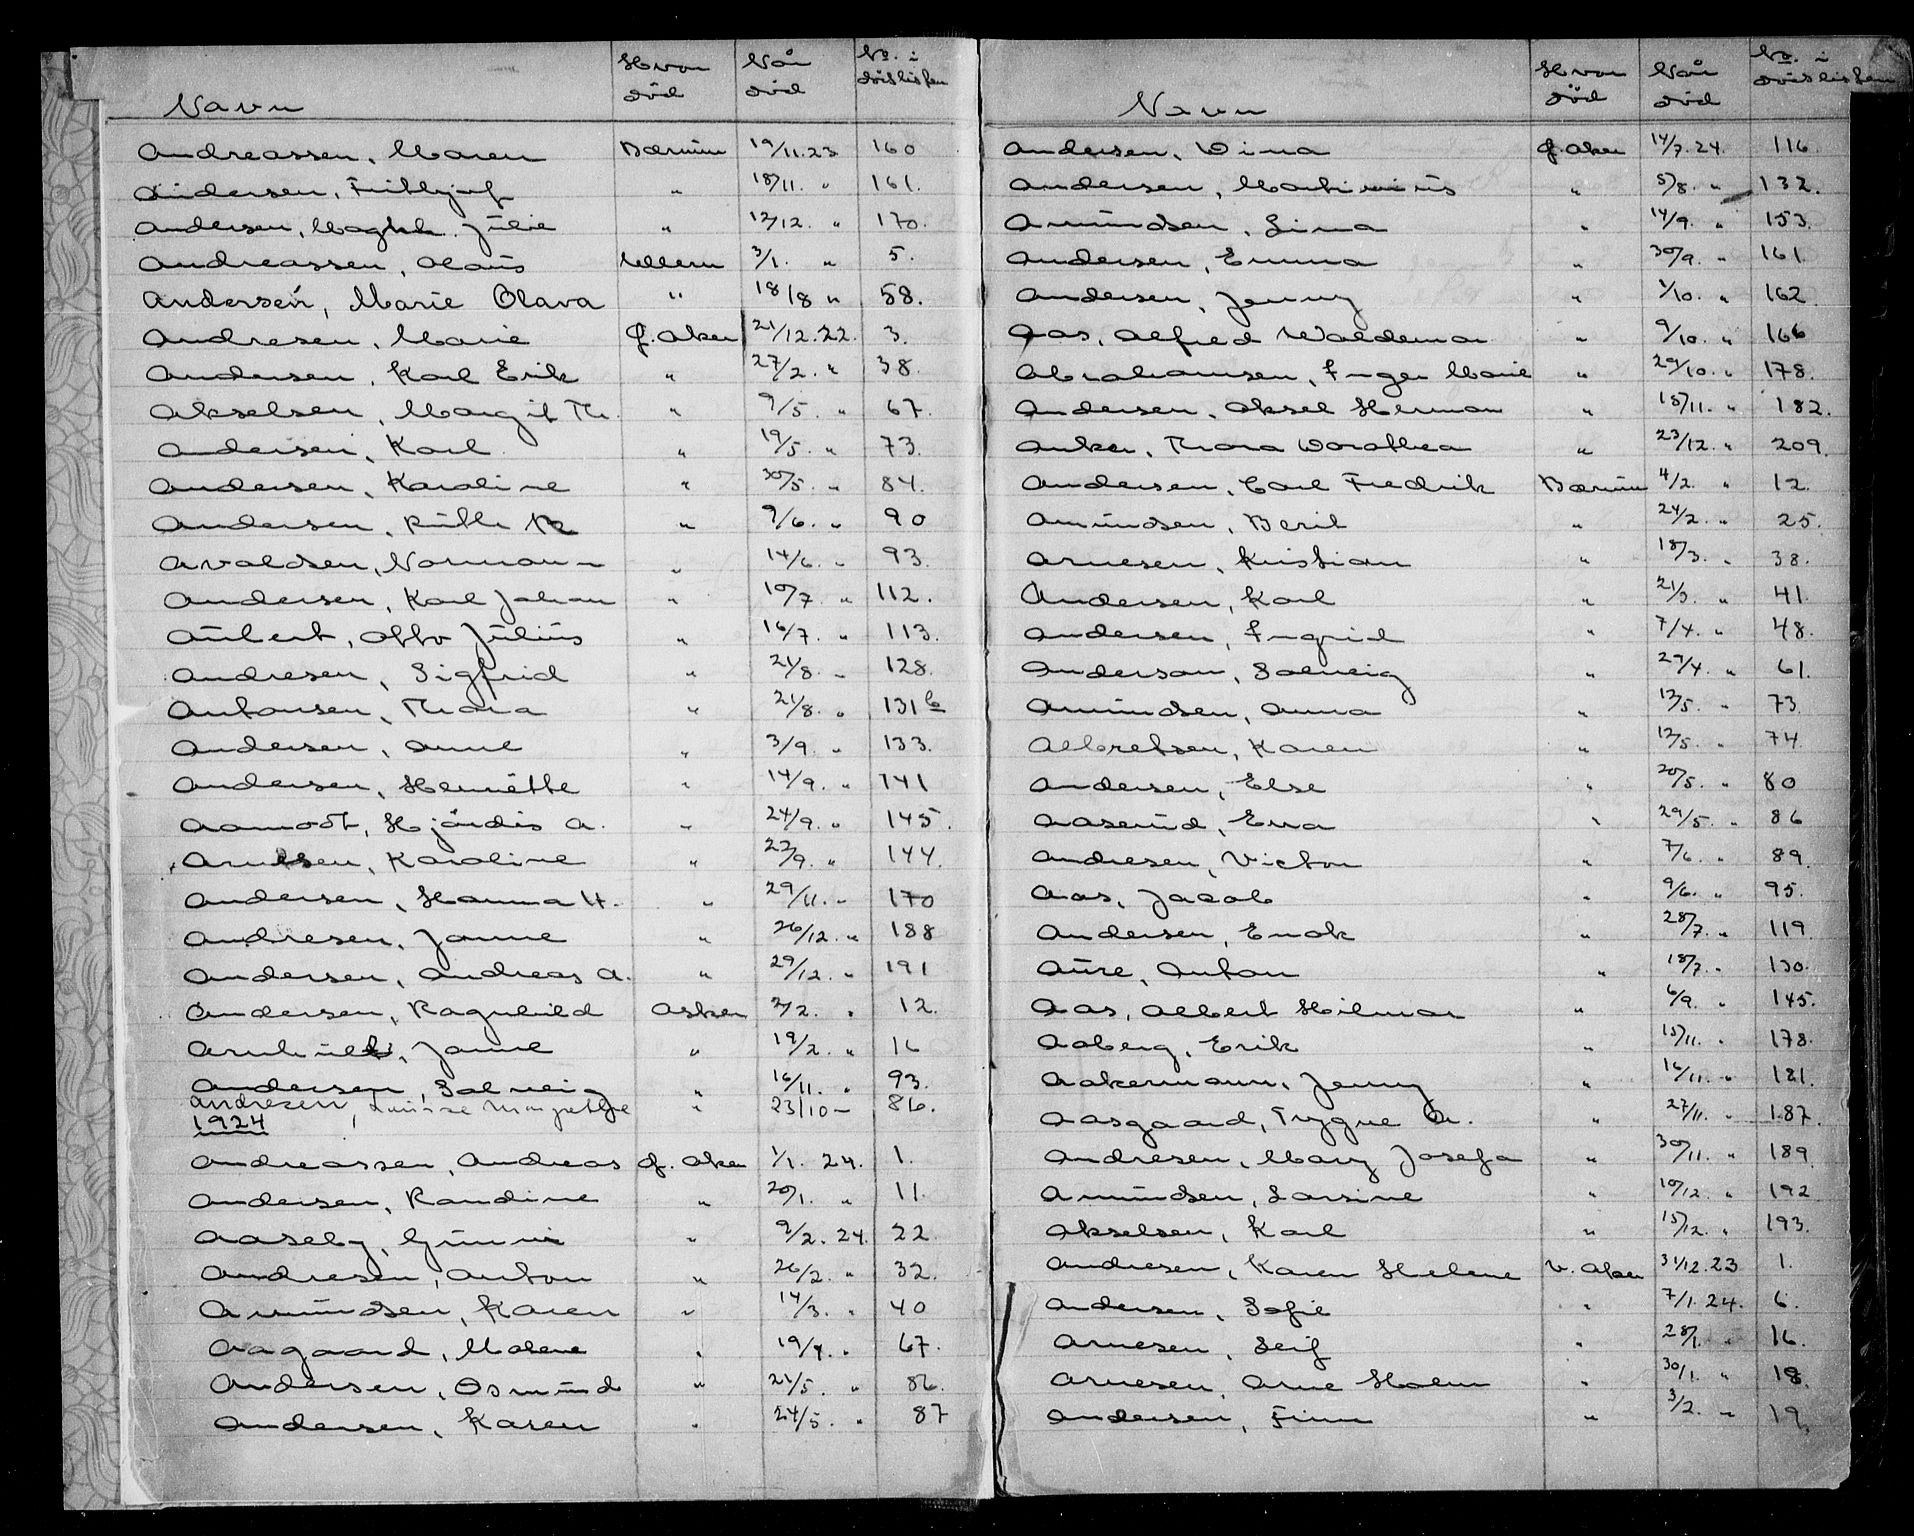 Navn Hvor død Når død No. i dødslisten
Andreassen, Maren Bærum 19/11.23 160
Andersen, Frithjof " 18/11. " 161.
Andersen, Magth. Julie " 12/12. " 170.
Andreassen, Olaus Ullern 3/1. " 5.
Andersen, Marie Olava " 18/8 " 58.
Andresen, Marie Ø. Aker 21/12.22. 3.
Andersen, Karl Erik " 27/2. " 38.
Akselsen, Margit Th. " 9/5. " 67.
Andersen, Karl " 19/5. " 73.
Andersen, Karoline " 30/5. " 84.
Andersen, Ruth R " 9/6. " 90
Avaldsen, Norman " 14/6. " 93.
Andersen, Karl Johan " 10/7. " 112.
Aubert, Otto Julius " 16/7. " 113.
Andresen, Sigfrid " 21/8. " 128.
Antonsen, Thora " 21/8. " 131 b
Andersen, Anne " 3/9. " 133.
Andersen, Henriette " 14/9. " 141
Aamodt, Hjørdis A. " 24/9. " 145.
Arnesen, Karoline " 22/9. " 144.
Andersen, Hanna H. " 29/11. " 170
Andresen, Janne " 26/12. " 188
Andersen, Andreas A. " 29/12. " 191
Andersen, Ragnhild Asker 2/2. " 12.
Arnhult, Janne " 19/2. " 16
Andersen, Solveig " 16/11. " 93.
Andresen, Louise Margrethe " 23/10 - 86.
1924
Andreassen, Andreas Ø. Aker 1/1. 24. 1.
Andersen, Randine " 20/1. " 11.
Aaseby, Gunnar " 9/2. 24. 22.
Andresen, Anton " 26/2. " 32.
Amundsen, Karen " 14/3. " 40
Aagaard, Malene " 19/4. " 67.
Andersen, Osmund " 21/5. " 86.
Andersen, Karen " 24/5. " 87
Navn Hvor død Når død No. i dødslisten
Andersen, Dina Ø. Aker 14/7.24. 116.
Andersen, Martinius " 5/8. " 132.
Amundsen, Lina " 14/9. " 153.
Andersen, Emma " 30/9. " 161.
Andersen, Jenny " 1/10. " 162.
Aas, Alfred Waldemar " 9/10. " 166
Abrahamsen, Inger Marie " 29/10. " 178.
Andersen, Aksel Herman " 15/11. " 182.
Anker, Thora Dorothea " 23/12. " 209.
Andersen, Carl Fredrik Bærum 4/2. " 12.
Amundsen, Beril " 24/2. " 25.
Arnesen, Kristian " 18/3. " 38.
Andersen, Karl " 21/3. " 41.
Andersen, Ingrid " 7/4. " 48.
Anderson, Solveig " 29/4. " 61.
Amundsen, Anna " 12/5. " 73.
Albretsen, Karen " 12/5. " 74.
Andersen, Else " 20/5. " 80
Aaserud, Erna " 29/5. " 86
Andresen, Victor " 7/6. " 89.
Aas, Jacob " 9/6. " 95.
Andersen, Enok " 28/7. " 119.
Aure, Anton " 18/7. " 130.
Aas, Albert Hilmar " 6/9. " 145.
Aaberg, Erik " 15/11. " 178.
Aakermann, Jenny " 16/11. " 181.
Aasgaard, Trygve A. " 27/11. " 187.
Andresen, Mary Josefa " 30/11. " 189.
Amundsen, Larsine " 10/12. " 192
Akselsen, Karl " 15/12. " 193.
Andresen, Karen Helene V. Aker 31/12.23 1.
Andersen, Sofie " 7/1.24. 6.
Arnesen, Leif " 28/1. " 16.
Arnesen, Arne Holm " 30/1. " 18.
Andersen, Finn " 3/2. " 19.